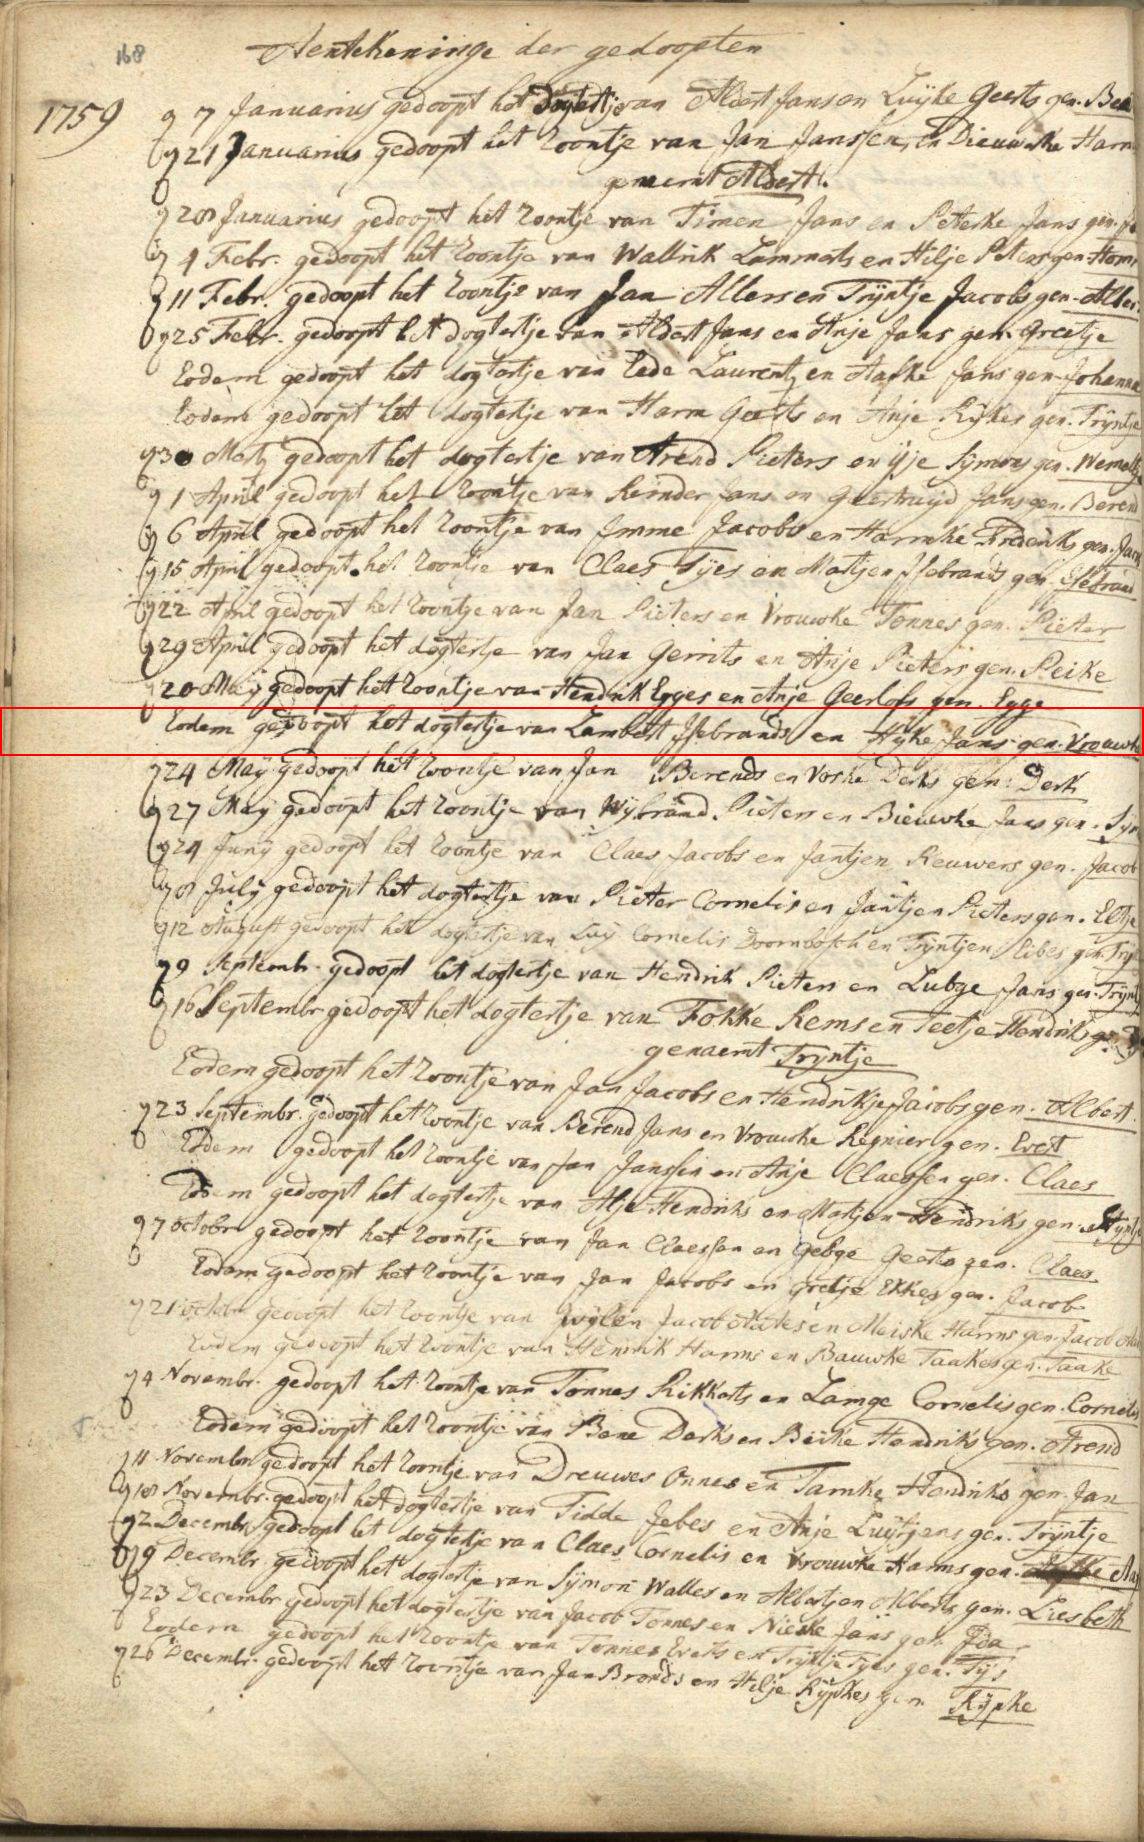 168
Aentekeninge der gedoopten
1759
7 Januarius gedoopt het dogtertje van Albert Jans en Luijke Geerts gen.
21 Januarius gedoopt het Zoontje van Jan Janssen, en Dieuwke Harm
genaemt Albert.
28 Januarius gedoopt het Zoontje van Timen Jans en Peterke Jans gen.
4 Febr. gedoopt het Zoontje van Wallrik Lammerts en Hilje Peters gen. Harm
11 Febr. gedoopt het Zoontje van Jan Allers en Trijntje Jacobs gen. Aller
25 Febr. gedoopt het dogtertje van Albert Jans en Anje Jans gen. Greetje
Eodem gedoopt het dogtertje van Eede Laurentz en Aafke Jans gen. Johanna
Eodem gedoopt het dogtertje van Harm Geerts en Anje Rijkes gen. Trijntje
30 Martz gedoopt het dogtertje van Arend Pieters en Ytje Symons gen.
1 April gedoopt het Zoontje van Reinder Jans en Geertruijd Jans gen. Berend
6 April gedoopt het Zoontje van Imme Jacobs en Harmke Frederiks gen. Jaco
15 April gedoopt het Zoontje van Claes Tijes en Matjen Isebrands gen. Isebrand
22 April gedoopt het Zoontje van Jan Pieters en Vrouwke Tonnes gen. Pieter
29 April gedoopt het dogtertje van Jan Gerrits en Anje Pieters gen. Peike
20 Maij gedoopt het Zoontje van Hendrik Egges en Anje Geerlofs gen. Egge
Eodem gedoopt het dogtertje van Lambert Isebrands en Hijke Jans gen. Vrouwke
24 Maij gedoopt het Zoontje van Jan Berends en Voske Derks gen. Derk
27 Maij gedoopt het Zoontje van Wijbrand Pieters en Bieuwke Jans gen. Sijm
24 Junij gedoopt het Zoontje van Claes Jacobs en Jantjen Reuwers gen. Jacob
8 Julij gedoopt het dogtertje van Pieter Cornelis en Jantjen Pieters gen. Eltje
12 August gedoopt het dogtertje van Luij Cornelis Doornbosch en Trijntjen Ribes gen. Trij
9 Septembr. gedoopt het dogtertje van Hendrik Pieters en Lubge Jans gen. Trijntj
16 Septembr gedoopt het dogtertje van Fokke Rems en Teetje Hendriks
genaemt Trijntje
Eodem gedoopt het Zoontje van Jan Jacobs en Hendrikje Jacobs gen. Albert
23 Septembr. gedoopt het Zoontje van Berend Jans en Vrouwke Regnier gen. Evert
Eodem gedoopt het Zoontje van Jan Janssen en Anje Claessen gen. Claes
Eodem gedoopt het dogtertje van Atje Hendriks en Matjen Hendriks gen.
7 octobr gedoopt het Zoontje van Jan Claessen en Gebge Geerts gen. Claes
Eodem gedoopt het Zoontje van Jan Jacobs en Gretje Ekkes gen. Jacob
21 octobr gedoopt het Zoontje van wijlen Jacob Aates en Meiske Harms gen. Jacob
Eodem gedoopt het Zoontje van Henrik Harms en Bauwke Taakes gen. Taake
4 Novembr. gedoopt het Zoontje van Tonnes Rikkerts en Lamge Cornelis gen. Cornelis
Eodem gedoopt het Zoontje van Bene Derks en Beike Hendriks gen. Arend
11 Novembr gedoopt het Zoontje van Dreuwes Onnes en Tamke Hendriks gen. Jan
18 Novembr. gedoopt het dogtertje van Tidde Jebes en Anje Luitjens gen. Trijntje
2 Decembr gedoopt het dogtertje van Claes Cornelis en Vrouwke Harms gen.
9 Decembr gedoopt het dogtertje van Sijmon Walles en Albertjen Alberts gen. Liesbeth
23 Decembr gedoopt het dogtertje van Jacob Tonnes en Nieske Jans gen.
Eodem gedoopt het Zoontje van Tonnes Everts en Trijntje Tijes gen. Tijs
26 Decembr. gedoopt het Zoontje van Jan Bronds en Hilje Rijpkes gen Rijpke